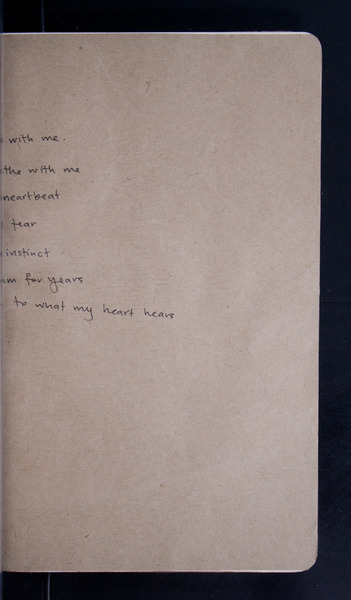 with me.
the with me
heartbeat
fear
instinct
am for years
to what my heart hears